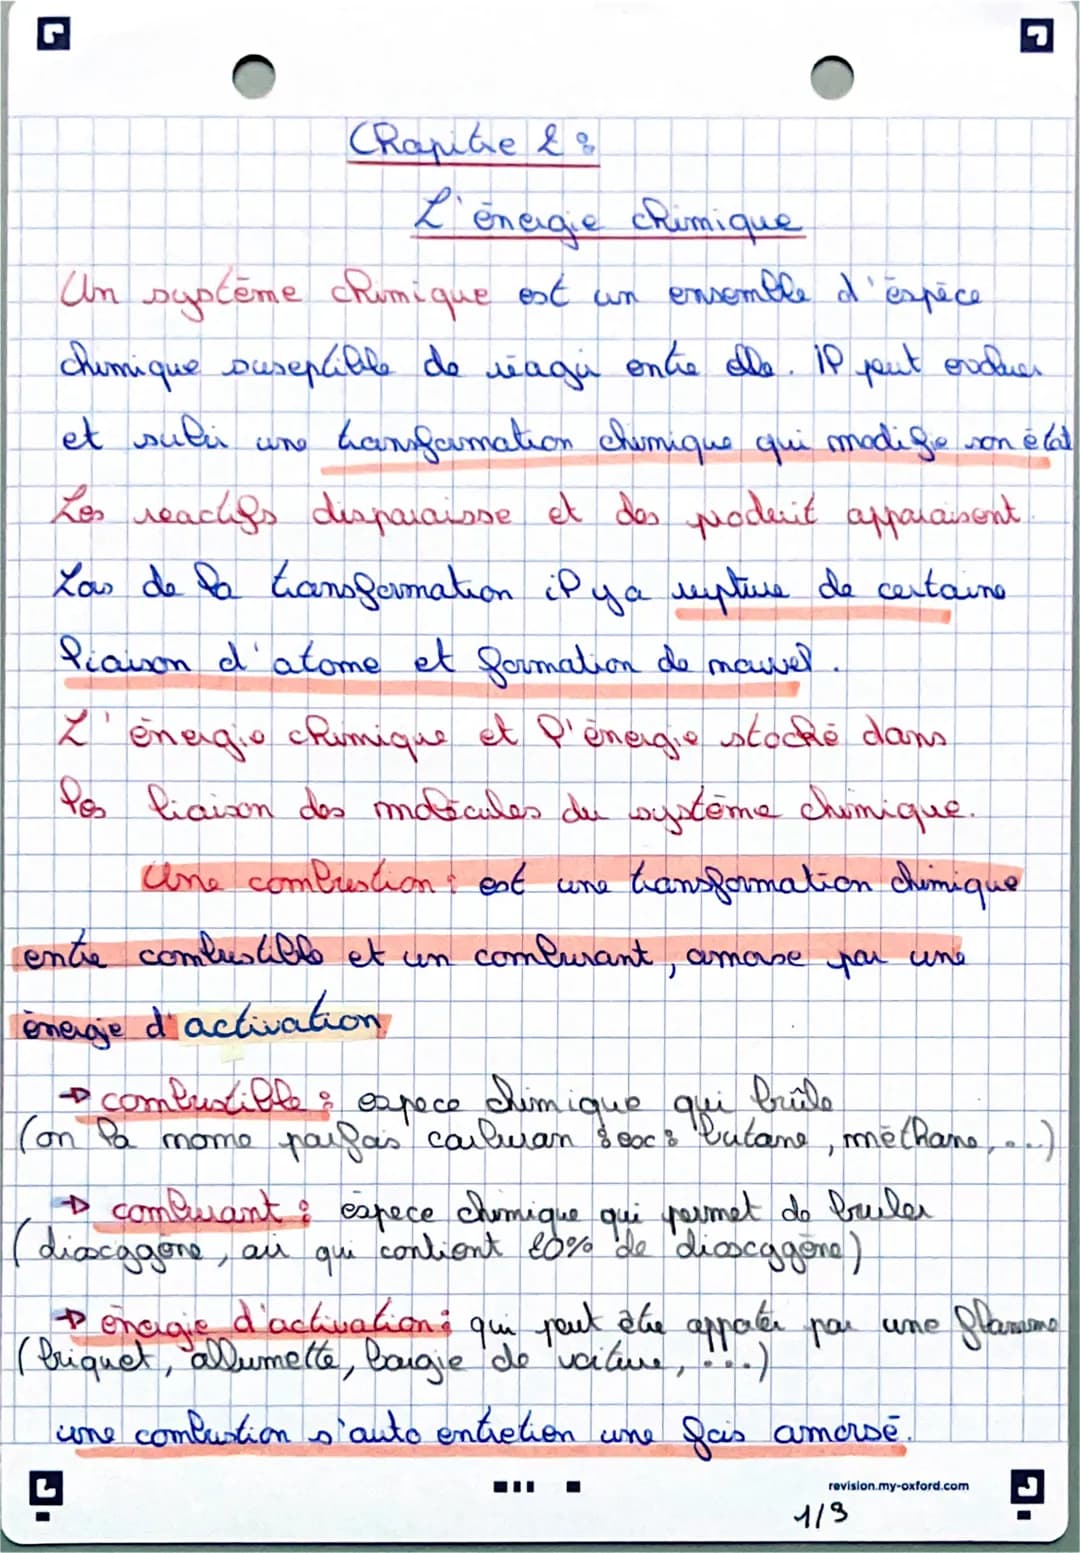 Chapitre 2 :
L'énergie chimique
Un système chimique est un ensemble d'éspèce
chimique suseptible de réagir entre elle. il peut evoluer
et subir une transformation chimique qui modifie son état
Les reactifs disparaisse et des produit apparaisent.
Lors de la transformation il y a rupture de certaine
liaison d'atome et formation de nouvel.
L'énergie chimique et l'énergie stocké dans
les liaison des molécules du système chimique.
Une combustion : est une transformation chimique
entre combustible et un comburant, amorse par une
énergie d'activation
→ combustible : espece chimique qui brûle
(on la nome parfois carburan : ex : butane, méthane, ...)
→ comburant : éspece chimique qui permet de bruler
(dioxygène, air qui contient 20% de dioxygène)
→ énergie d'activation : qui peut être apporter par une flamme
(briquet, allumette, bougie de voiture, ...)
une combustion s'auto entretien une fois amorsé.
revision.my-oxford.com
1/3